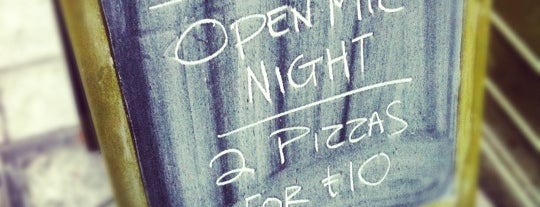 OPEN MIC
NIGHT
2 PIZZAS
FOR £10